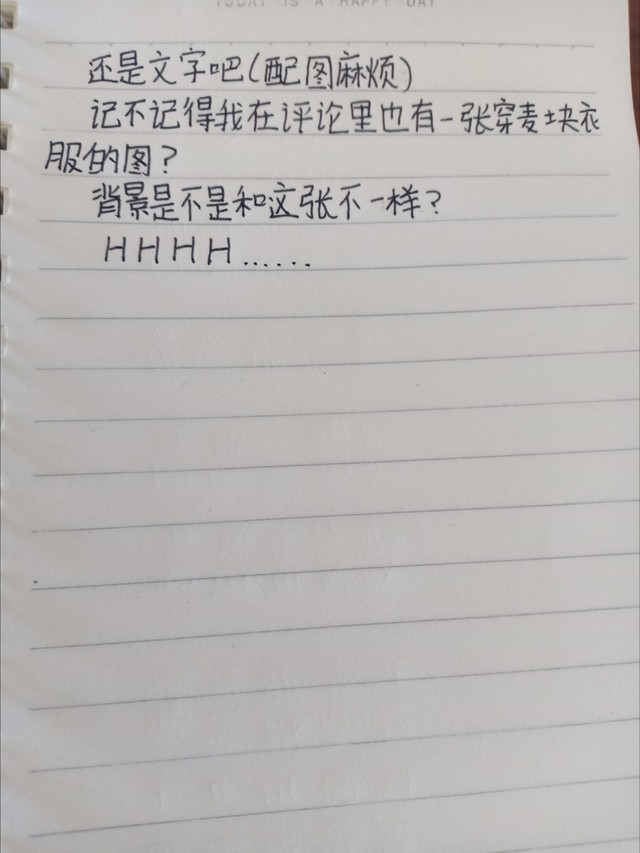 TODAY IS A HAPPY DAY
还是文字吧(配图麻烦)
记不记得我在评论里也有一张穿麦块衣
服的图?
背景是不是和这张不一样?
HHHH......